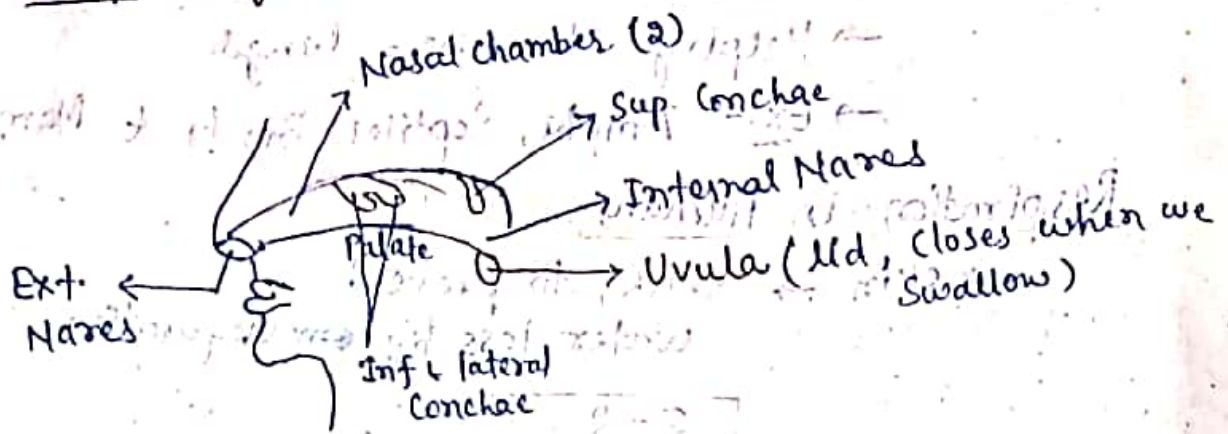 Nasal chamber (2)
Sup. Conchae
Internal Nares
Uvula (lid, closes when we
swallow)
Palate
Ext.
Nares
Inf & lateral
Conchae